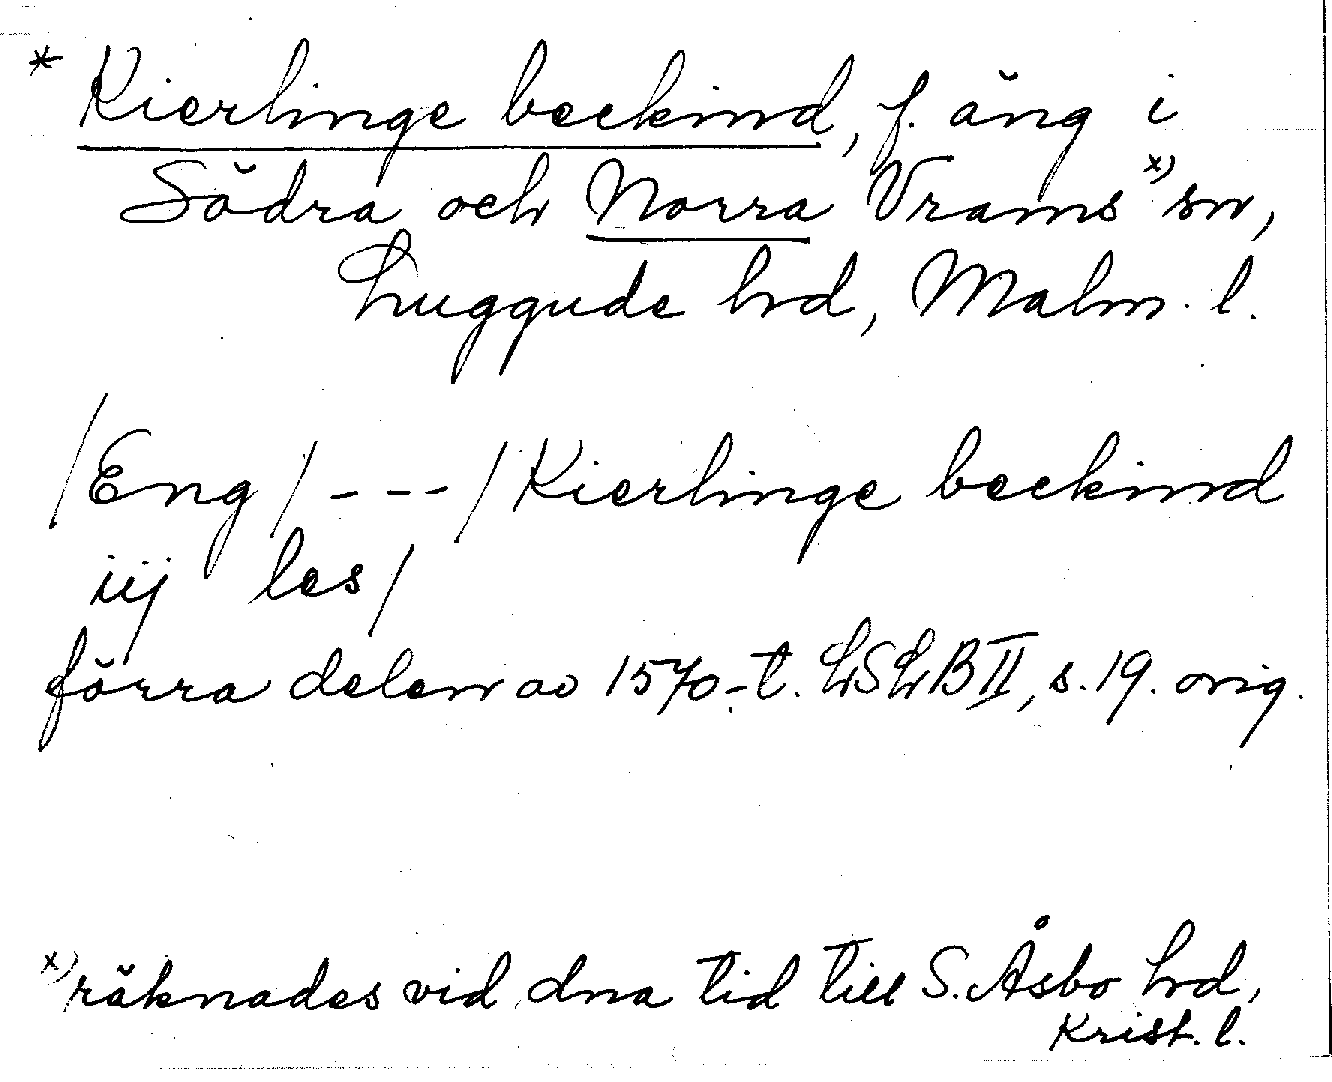 * Kierlinge beckind, f. äng i
Södra och Norra Vrams x) sn,
Luggude hd, Malm. l.
/Eng/---/Kierlinge beckind
iij les/
förra delen av 1570-t. LSLB II, s. 19. orig.
x) räknades vid dna tid till S. Åsbo hd,
Krist. l.